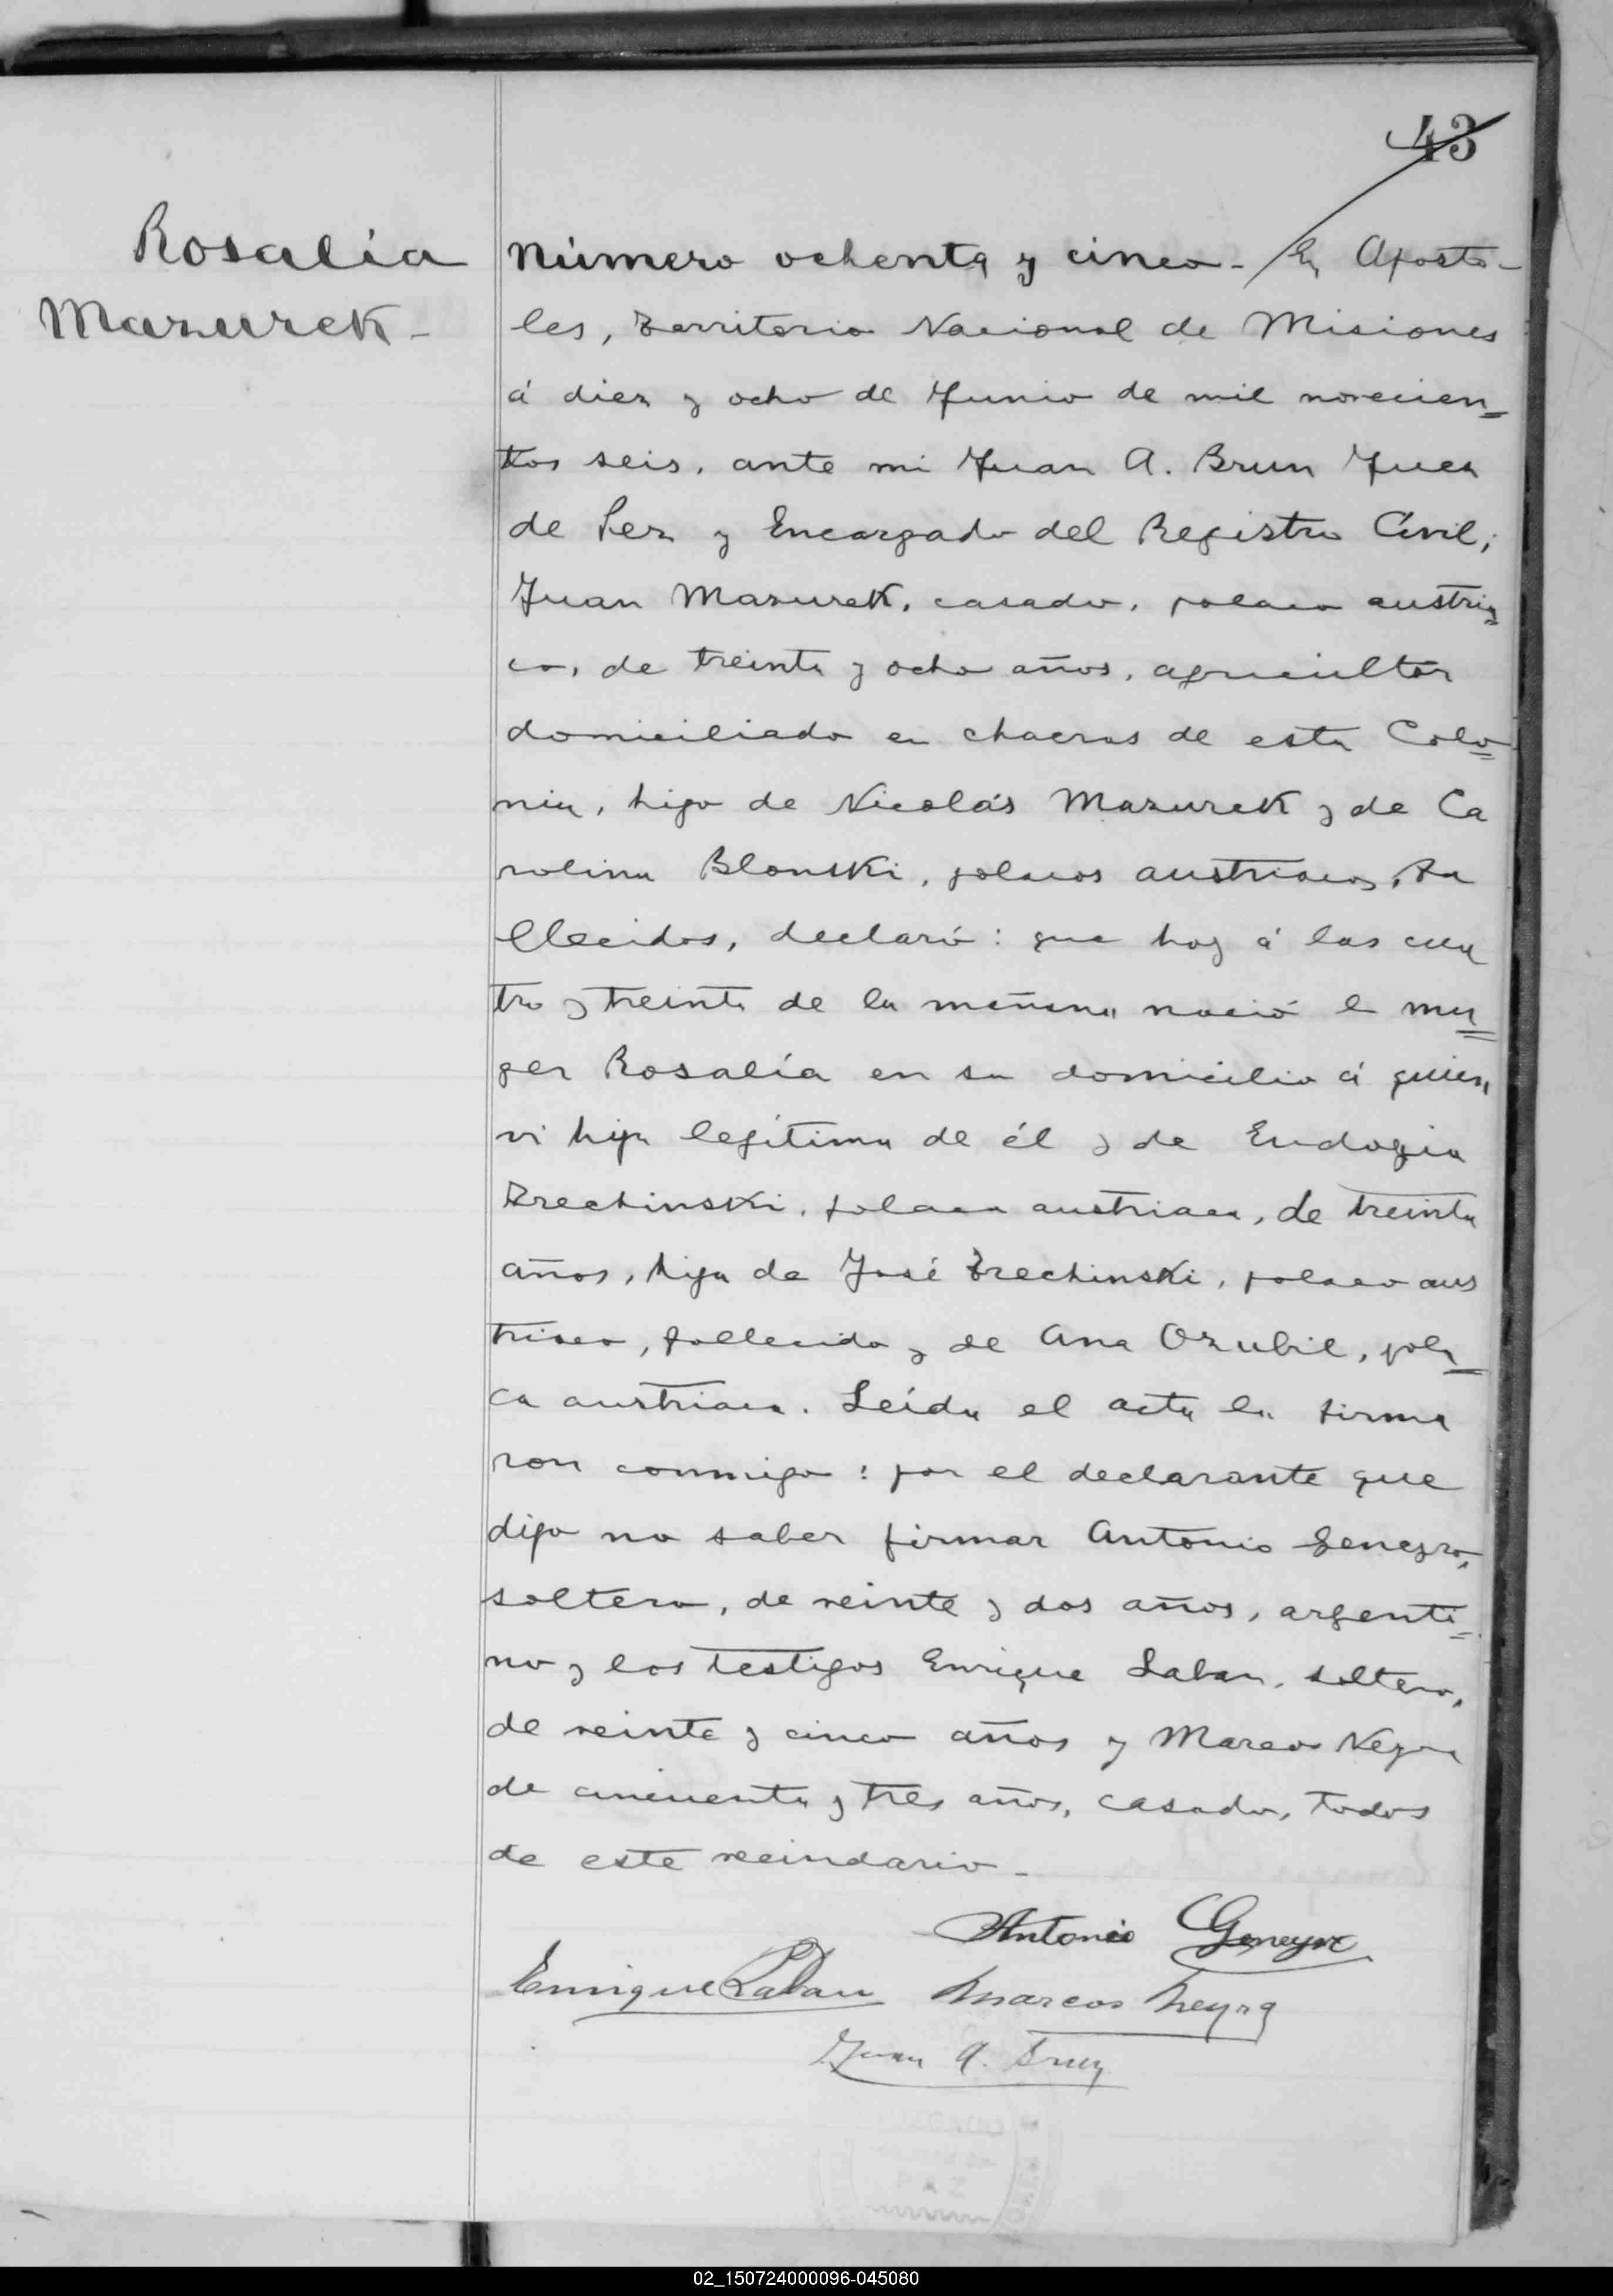 43
Rosalía
Mazurek -
Número ochenta y cinco - En Aposto-
les, Territorio Nacional de Misiones
á diez y ocho de Junio de mil novecien=
tos seis, ante mi Juan A. Brun Juez
de Paz y Encargado del Registro Civil;
Juan Mazurek, casado, polaco austria=
co, de treinta y ocho años, agricultor
domiciliado en chacras de esta Colo=
nia, hijo de Nicolás Mazurek y de Ca
rolina Blonski, polacos austriacos, fa
llecidos, declaró: que hoy á las cua
tro y treinta de la mañana nació la mu=
ger Rosalía en su domicilio á quien
vi hija legítima de él y de Eudogia
Trechinski, polaca austriaca, de treinta
años, hija de José Trechinski, polaco aus
triaco, fallecido y de Ana Ozubil, pola=
ca austriaca. Leída el acta la firma
ron conmigo: por el declarante que
dijo no saber firmar Antonio Geneyro,
soltero, de veinte y dos años, argenti=
no y los testigos Enrique Laban, soltero,
de veinte y cinco años y Marcos Neyra
de cincuenta y tres años, casado, todos
de este vecindario -
Antonio Geneyro
Enrique Laban Marcos Neyra
Juan A. Brun
PAZ
02_150724000096-045080